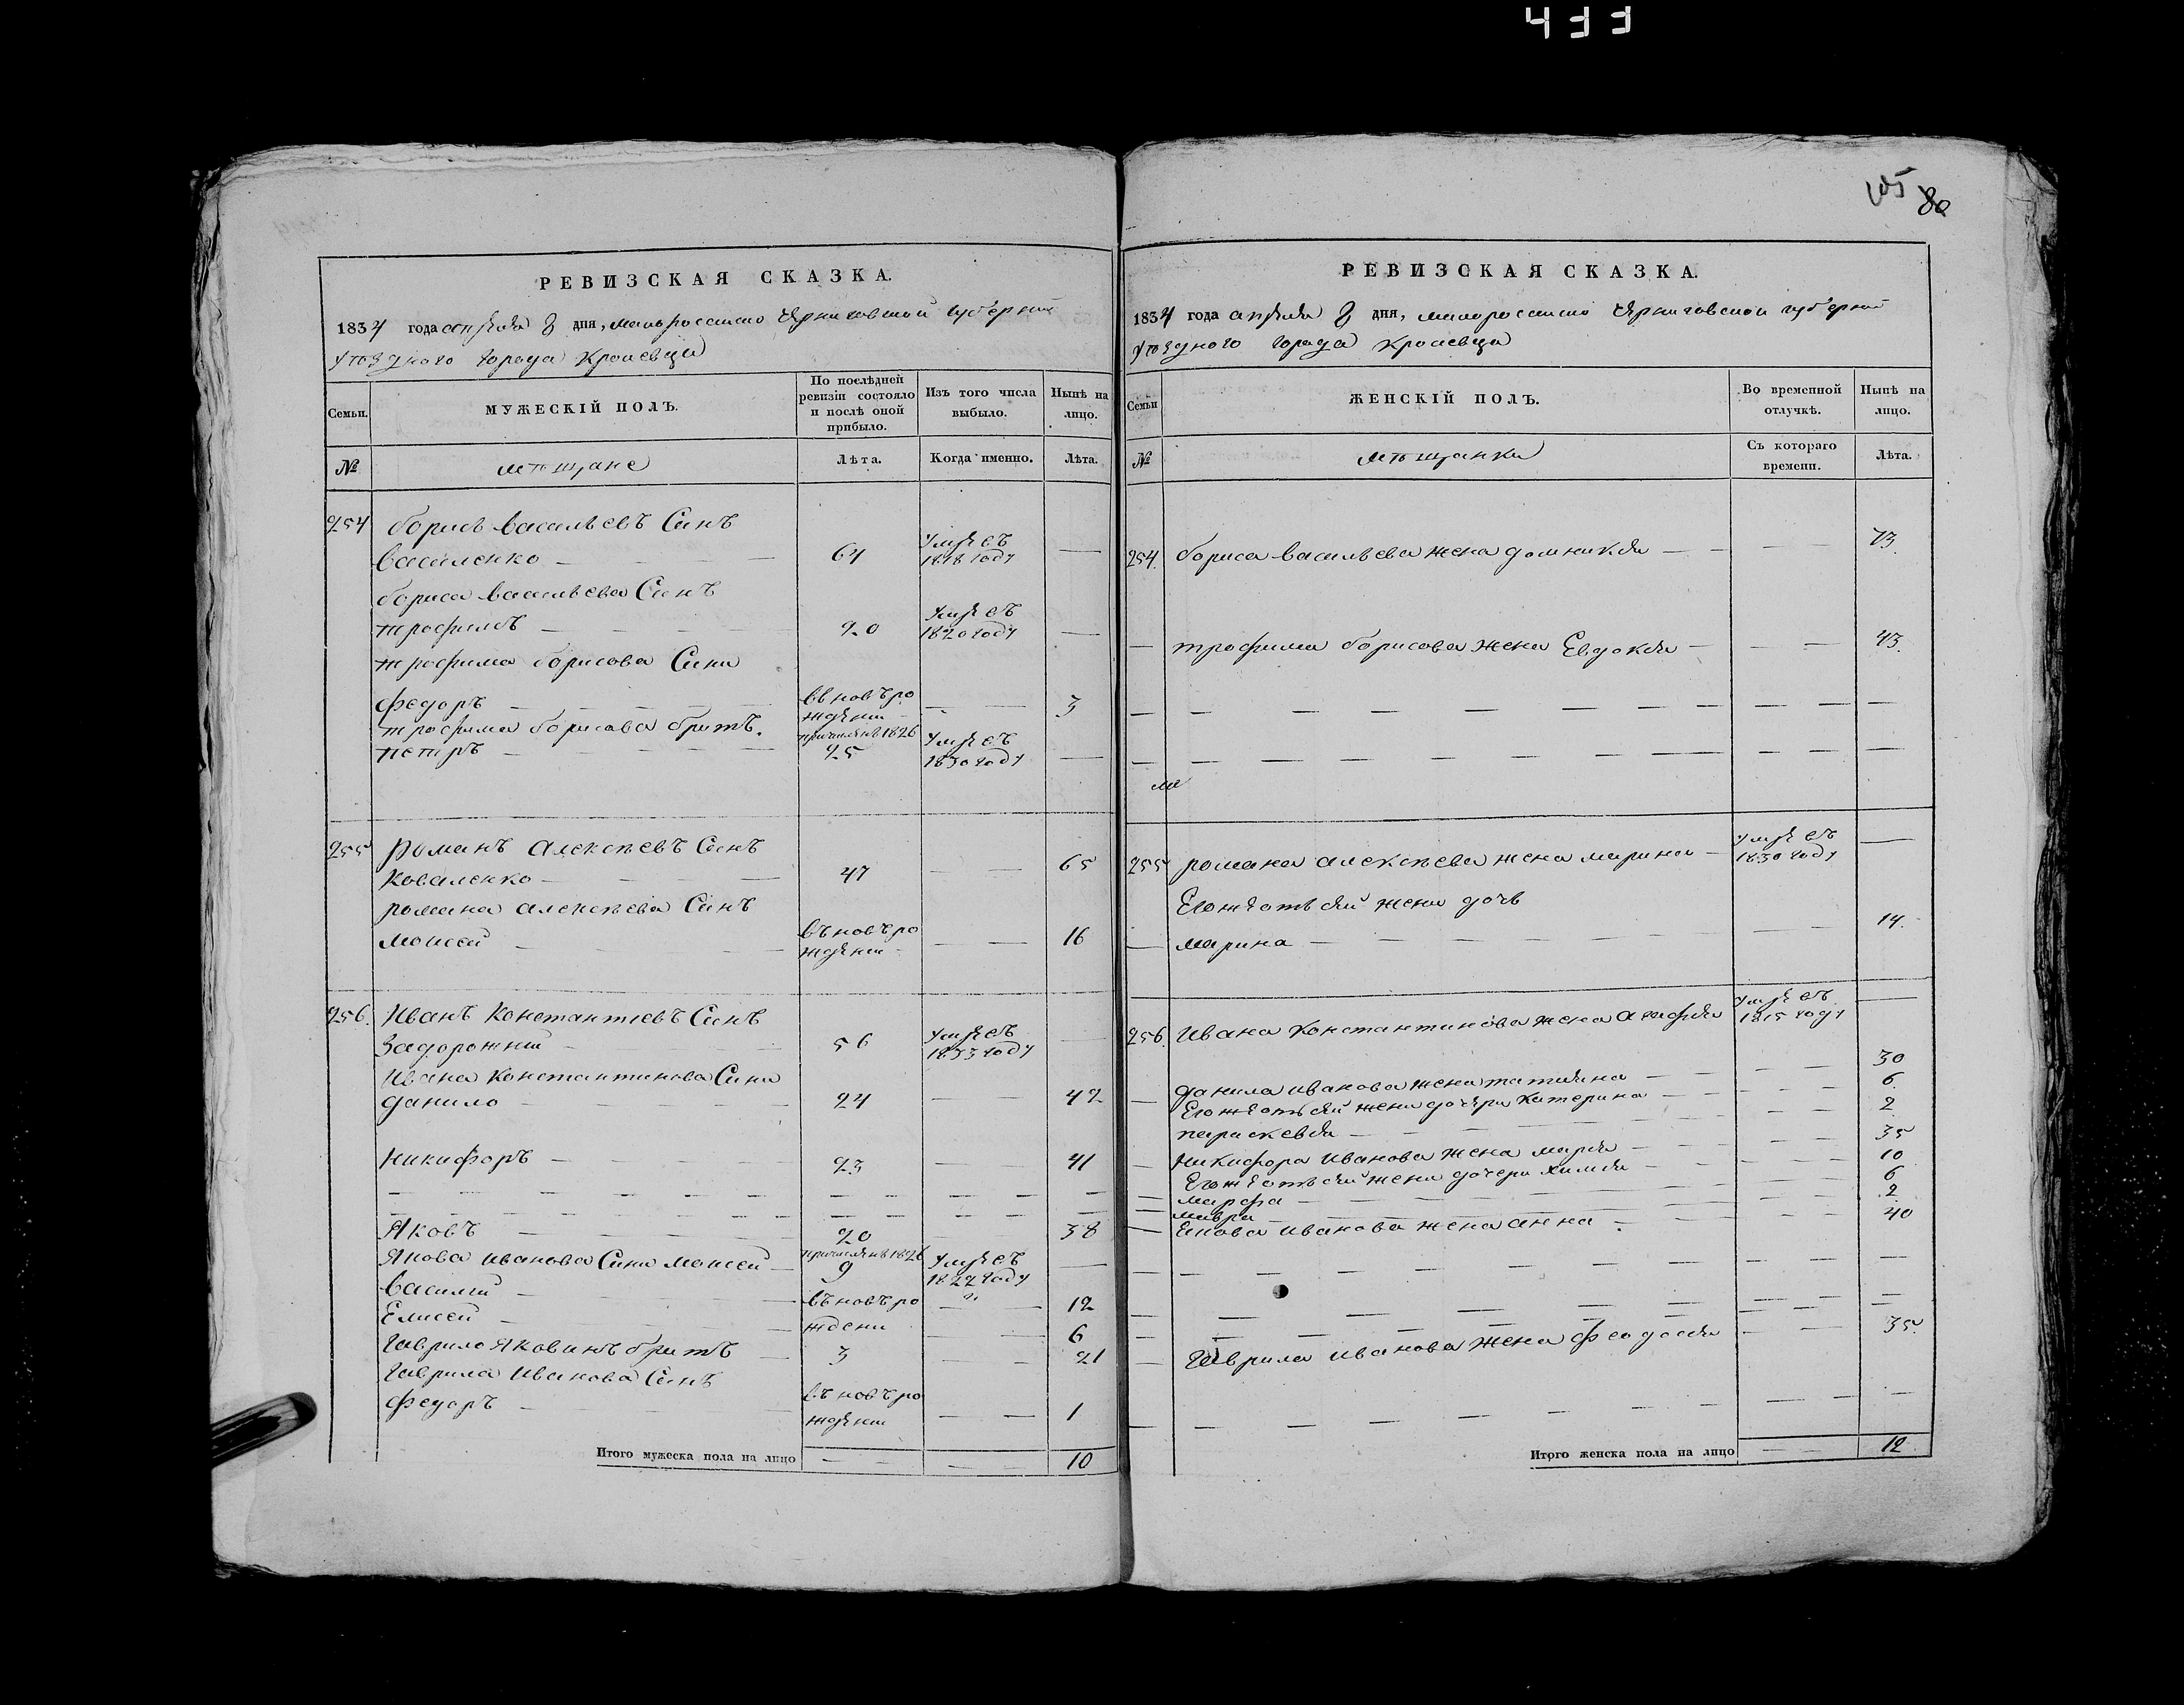 433
105 80
РЕВИЗСКАЯ СКАЗКА.
1834 года апреля 8 дня, малоросиско Черниговской губернии
уезднаго города Кролевца
Семьи.
МУЖЕСКІЙ ПОЛЪ.
По послѣдней ревизіи состояло и послѣ оной прибыло.
Изъ того числа выбыло.
Нынѣ на лицо.
№
мѣщане
Лѣта.
Когда именно.
Лѣта.
254 борисъ васильевъ Синъ
василенко — 64 умре въ 1818 году —
бориса васильева Синъ
трофимъ — 20 умре въ 1820 году —
трофима борисова Сини
федоръ — въ новъ рождени — 3
трофима борисова братъ.
петръ — 1826 25 умре въ 1830 году —
255 романъ алексѣевъ Синъ
коваленко — 47 — 65
романа алексѣева Синъ
моисей — въ новъ рождени — 16
256. Иванъ Константиевъ Синъ
Задорожний — 56 умре въ 1833 году —
Ивана Константинова Сини
данило — 24 — 42
Никифоръ — 23 — 41
Яковъ — 20 — 38
Якова иванова Сини моисей — 1826 9 умре въ 1822 году —
василий — въ новъ рождени — 12
Елисей — 6
гаврило Яковинъ братъ — 3 — 21
гаврила иванова Синъ
федоръ — въ новъ рождени — 1
Итого мужеска пола на лицо — — 10
РЕВИЗСКАЯ СКАЗКА.
1834 года апреля 8 дня, малоросиско Черниговской губернии
уезднаго города Кролевца
Семьи
ЖЕНСКІЙ ПОЛЪ.
Во временной отлучкѣ.
Нынѣ на лицо.
№
мѣщанки
Съ котораго времени.
Лѣта.
254. бориса васильева жена домникия — — 73.
— трофима борисова жена Евдокия — — 43.
255 романа алексѣева жена марина — умре въ 1830 году —
Егожеотъ сей жени дочь
— марина — 14.
256. Ивана Константинова жена Агафия умре въ 1815 году —
— данила иванова жена татияна — 30
Егожеотъ сей жени дочери катерина — 6.
параскевия — 2
— Никифора иванова жена мария — 35
Егожеотъ сей жени дочери химия — 10
— марфа — 6
— мавра — 2
— Якова иванова жена анна — 40
— гаврила иванова жена феодосия — 35.
Итого женска пола на лицо — — 12